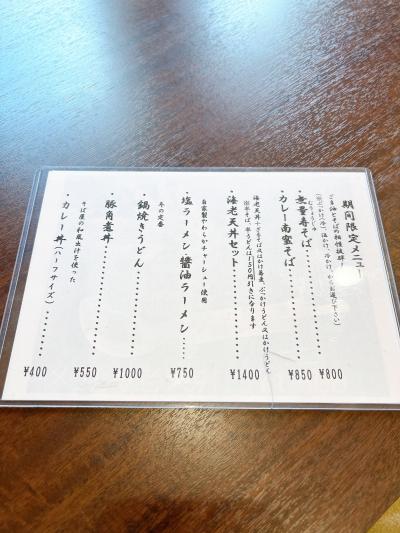 期間限定メニュー
ごま油とそばが相性抜群!
(温かけ、冷かけ、からお選び下さい)
むりょうじゅ
無量寿そば ¥800
カレー南蛮そば ¥850
海老天丼+ざるそば又はかけ蕎麦、ぶっかけうどん又はかけうどん
※半そば、半うどんは150円引きになります
海老天丼セット ¥1400
自家製やわらかチャーシュー使用
塩ラーメン・醤油ラーメン ¥750
冬の定番
・鍋焼きうどん ¥1000
・豚角煮丼 ¥550
そば屋の和風出汁を使った
・カレー丼(ハーフサイズ) ¥400